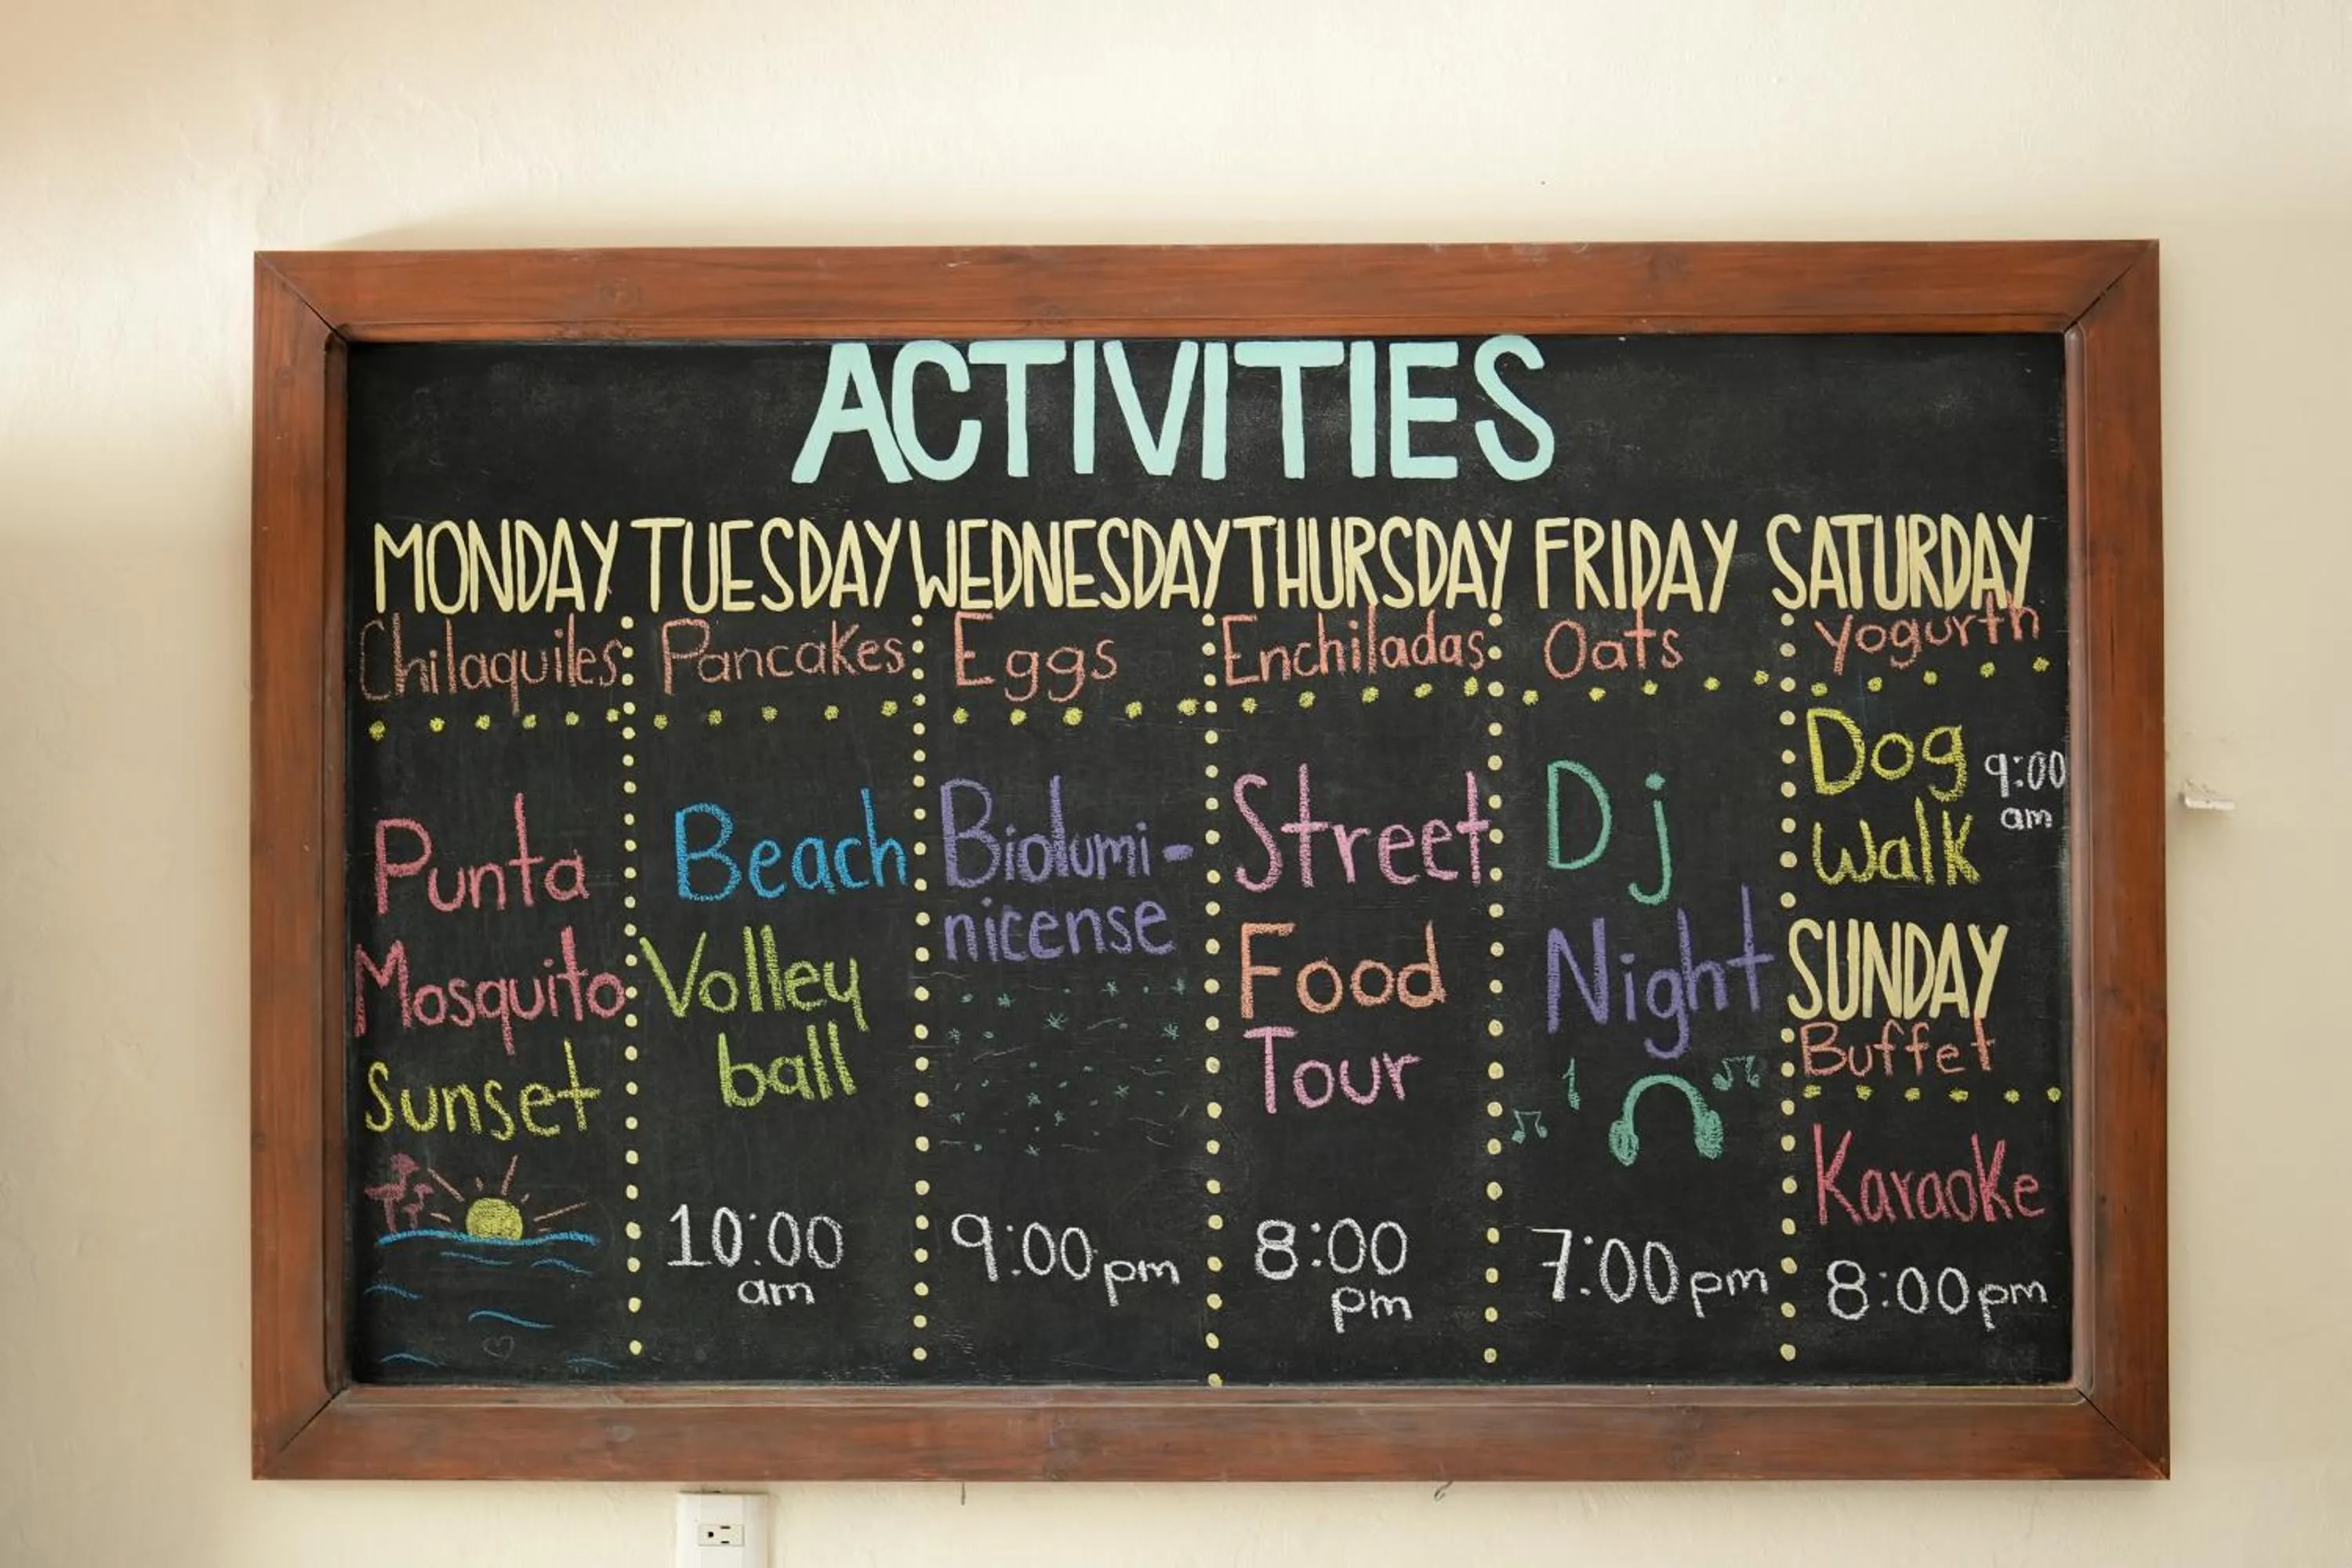 ACTIVITIES
MONDAY
Chilaquiles
Punta
Mosquito
Sunset
TUESDAY
Pancakes
Beach
Volley
ball
10:00
am
WEDNESDAY
Eggs
Biolumi-
nicense
9:00 pm
THURSDAY
Enchiladas
Street
Food
Tour
8:00
pm
FRIDAY
Oats
Dj
Night
7:00 pm
SATURDAY
Yogurth
Dog
Walk
9:00
am
SUNDAY
Buffet
Karaoke
8:00 pm